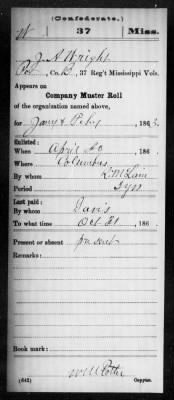 (Confederate.)
W 37 Miss.
J. A. Wright
Co. , 37 Reg't Mississippi Vols.
Appears on
Company Muster Roll
of the organization named above,
for Jany & Feby , 186 3.
Enlisted:
When April 20 , 186
Where Columbus
By whom
Period 3 yrs
Last paid:
By whom Davis
To what time Oct 31 , 186
Present or absent present
Remarks:
Book mark:
(642) Copyist.